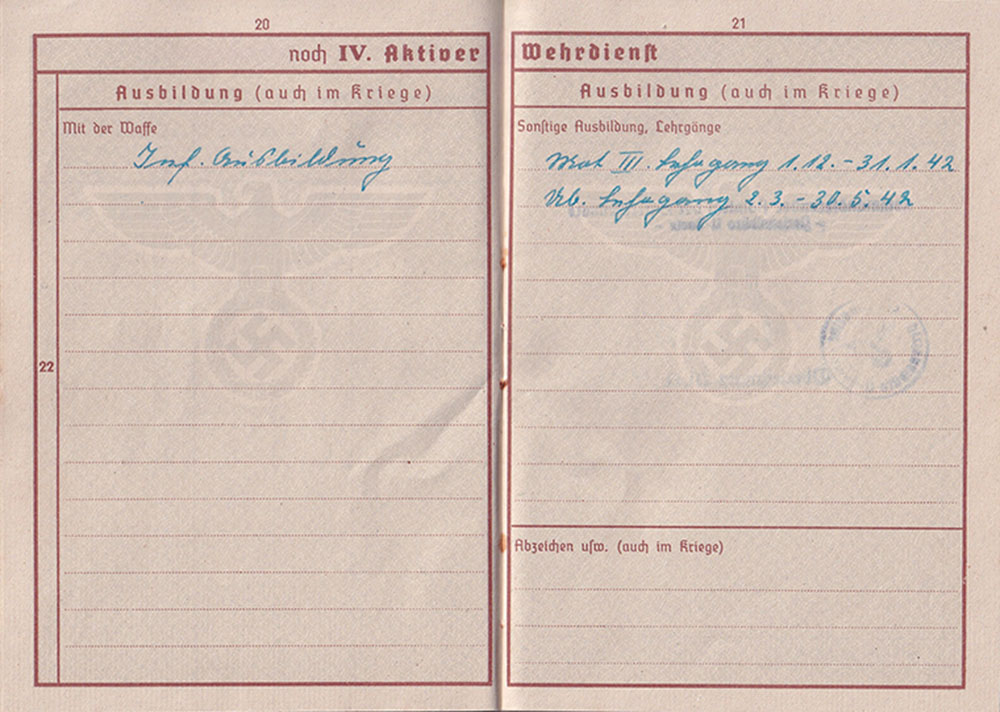 20
noch IV. Aktiver
Ausbildung (auch im Kriege)
Mit der Waffe
Inf. Ausbildung
22
21
Wehrdienst
Ausbildung (auch im Kriege)
Sonstige Ausbildung, Lehrgänge
III. Lehrgang 1.12.-31.1.42
Lehrgang 2.3.-30.5.42
Abzeichen usw. (auch im Kriege)